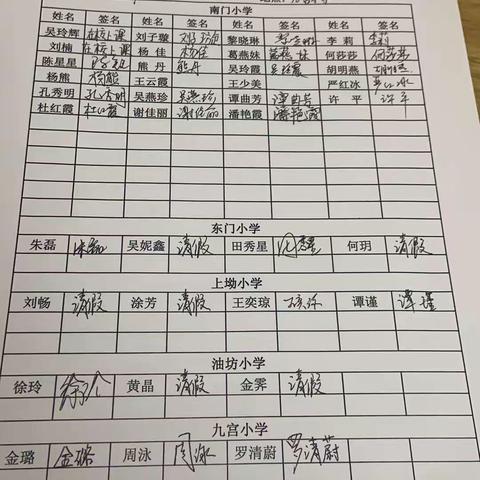 南门小学
姓名 签名 姓名 签名 姓名 签名 姓名 签名
吴玲辉 在校上课 刘子璇 刘子璇 黎晓琳 黎晓琳 李莉 李莉
刘楠 在校上课 杨佳 杨佳 葛燕妹 葛燕妹 何莎莎 何莎莎
陈星星 熊丹 熊丹 吴玲霞 吴玲霞 胡明燕
杨熊 杨熊 王云霞 王少美 严红冰 严红冰
孔秀明 孔秀明 吴燕珍 吴燕珍 谭曲芳 谭曲芳 许平 许平
杜红霞 杜红霞 谢佳丽 谢佳丽 潘艳霞 潘艳霞
东门小学
朱磊 朱磊 吴妮鑫 请假 田秀星 田秀星 何玥 请假
上坳小学
刘畅 请假 涂芳 请假 王奕琼 谭谨 谭谨
油坊小学
徐玲 徐玲 黄晶 请假 金霁 请假
九宫小学
金璐 金璐 周泳 周泳 罗清蔚 罗清蔚